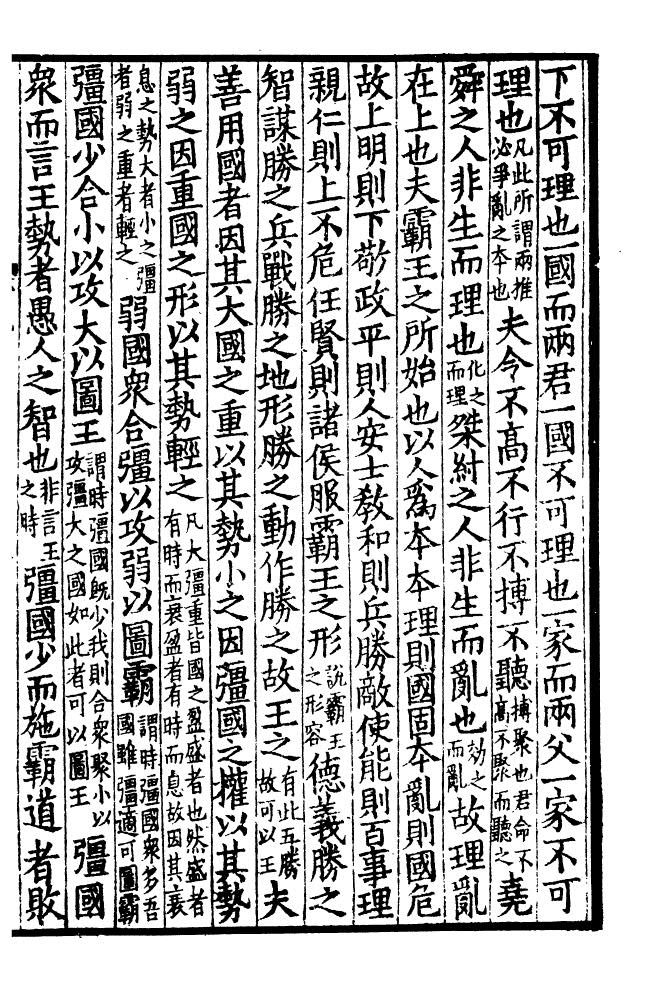 下不可理也一國而兩君一國不可理也一家而兩父一家不可
理也凡此所謂兩推必爭亂之本也夫令不高不行不摶不聽摶聚也君命不高不聚而聽之堯
舜之人非生而理也化之而理桀紂之人非生而亂也効之而亂故理亂
在上也夫霸王之所始也以人爲本本理則國固本亂則國危
故上明則下敬政平則人安士教和則兵勝敵使能則百事理
親仁則上不危任賢則諸侯服霸王之形說霸王之形容德義勝之
智謀勝之兵戰勝之地形勝之動作勝之故王之有此五勝故可以王夫
善用國者因其大國之重以其勢小之因彊國之權以其勢
弱之因重國之形以其勢輕之凡大彊重皆國之盈盛者也然盛者有時而衰盈者有時而息故因其衰
息之勢大者小之彊者弱之重者輕之弱國衆合彊以攻弱以圖霸謂時彊國衆多吾國雖彊適可圖霸
彊國少合小以攻大以圖王謂時彊國既少我則合衆聚小以攻彊大之國如此者可以圖王彊國
衆而言王勢者愚人之智也非言王之時彊國少而施霸道者敗